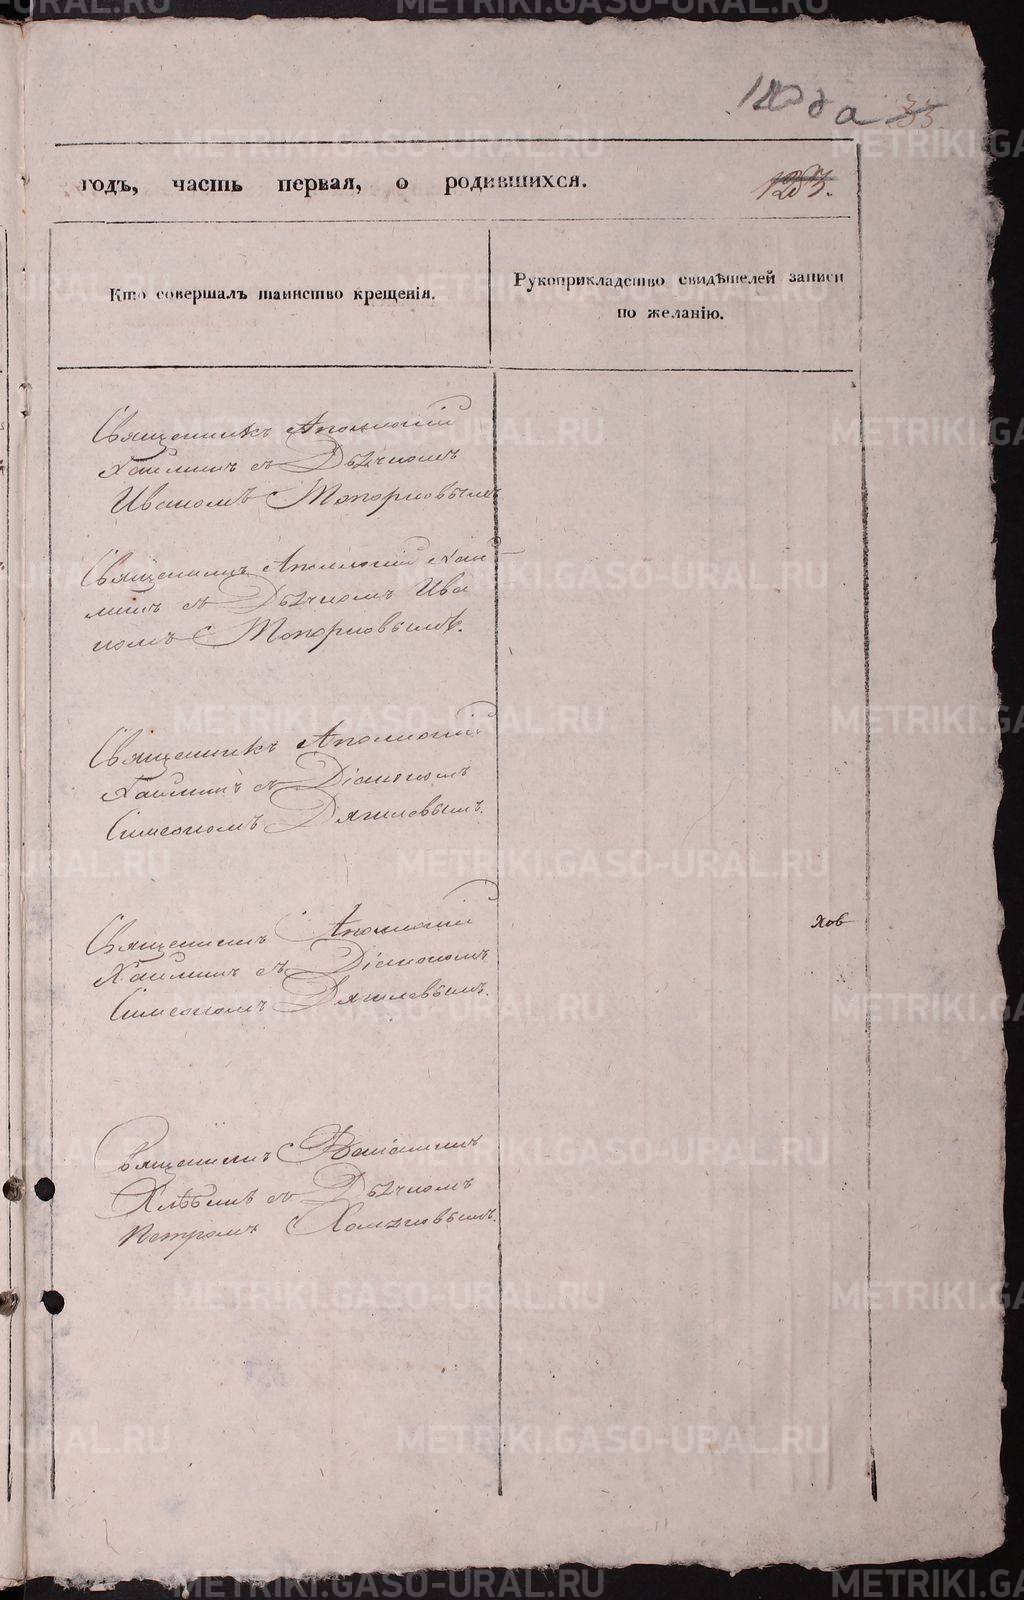 годъ, часть первая, о родившихся.
Кто совершалъ таинство крещенія.
Рукоприкладство свидѣтелей записи
по желанію.
Священникъ Аполлоній
Хаилинъ съ Дьячкомъ
Иваномъ Топорковымъ
Священникъ Аполлоній Хаи
линъ съ Дьячкомъ Ива
номъ Топорковымъ.
Священникъ Аполлоній
съ Діакономъ
Симеономъ Дягилевымъ.
Священникъ Аполлоній
съ Діакономъ
Симеономъ Дягилевымъ.
хов
Священникъ
Хлѣбинъ съ Дьячкомъ
Петромъ
METRIKI.GASO-URAL.RU